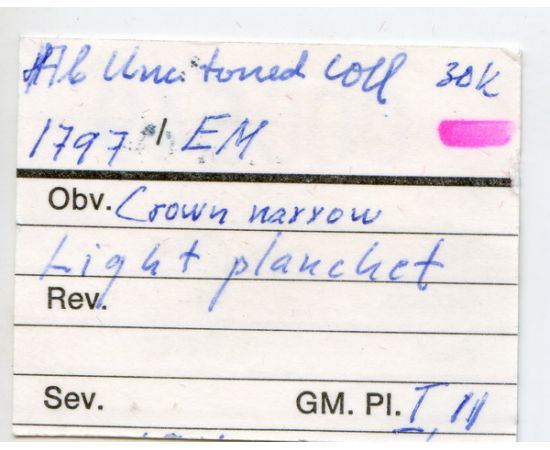 Unc toned coll 30K
1797 EM
Obv. Crown narrow
Light planchet
Rev.
Sev. GM. Pl. I, 11